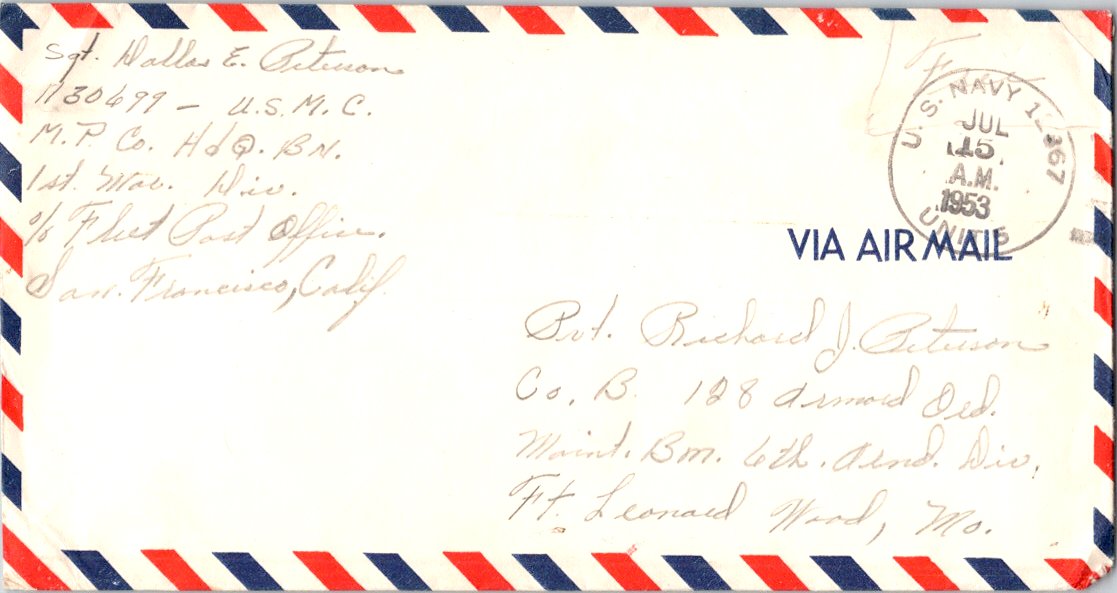 Sgt. Dallas E. Peterson
1130699 - U.S.M.C.
M.P. Co. HdQ. BN.
1st. Mar. Div.
c/o Fleet Post Office.
San. Francisco, Calif.
Free
U.S. NAVY 1 867
JUL
15
A.M.
1953
UNIT 5
VIA AIR MAIL
Pvt. Richard J. Peterson
Co. B. 128 Armord Ord.
Maint. Bn. 6th. Armd. Div.
Ft. Leonard Wood, Mo.